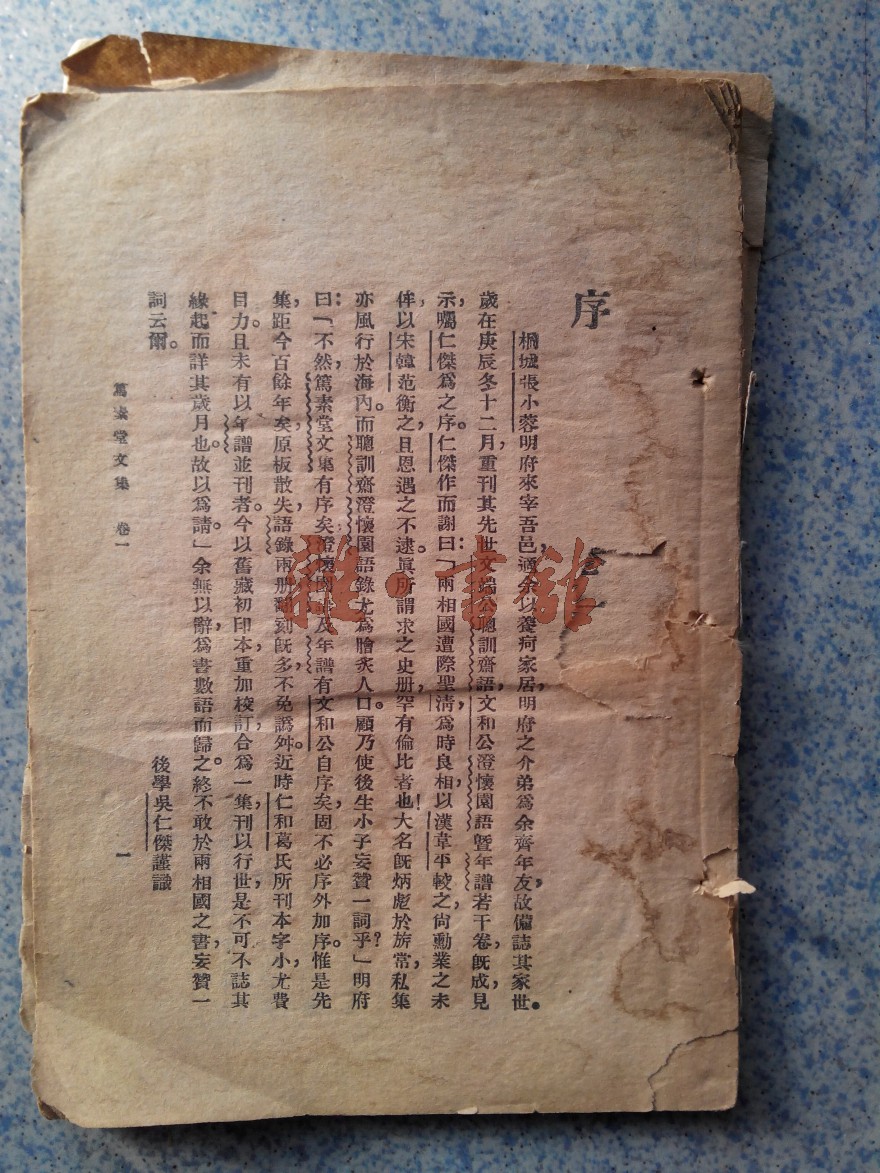 序
桐城張小蓉明府來宰吾邑，適余以養疴家居，明府之介弟爲余齊年友，故備誌其家世。
歲在庚辰冬十二月，重刊其先世文端公聰訓齋語，文和公澄懷園語暨年譜若干卷，旣成，見
示，囑仁傑爲之序。仁傑作而謝曰：「兩相國遭際聖淸，爲時良相，以漢韋平較之，尙勳業之未
侔，以宋韓范衡之，且恩遇之不逮。眞所謂求之史册，罕有倫比者也！大名旣炳彪於旂常，私集
亦風行於海內。而聰訓齋澄懷園語錄尤爲膾炙人口。顧乃使後生小子妄贊一詞乎？」明府
曰：「不然，篤素堂文集有序矣，澄懷園語及年譜有文和公自序矣，固不必序外加序。惟是先
集，距今百餘年矣，原板散失，語錄兩册，翻刻旣多，不免譌舛。近時仁和葛氏所刊本字小，尤費
目力。且未有以年譜並刊者。今以舊藏初印本，重加校訂，合爲一集，刊以行世，是不可不誌其
緣起而詳其歲月也。故以爲請。」余無以辭，爲書數語而歸之。終不敢於兩相國之書，妄贊一
詞云爾。
後學吳仁傑謹識
篤素堂文集 卷一 一